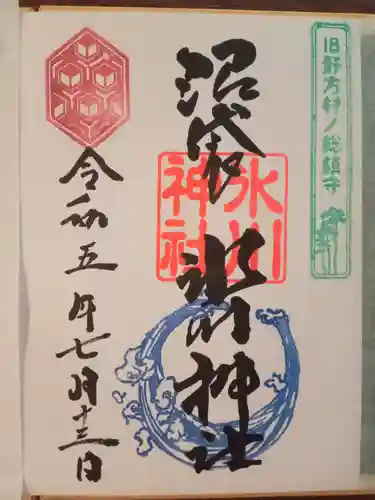 旧野方村ノ総鎮守
沼袋氷川神社
氷川
神社
令和五年七月十三日